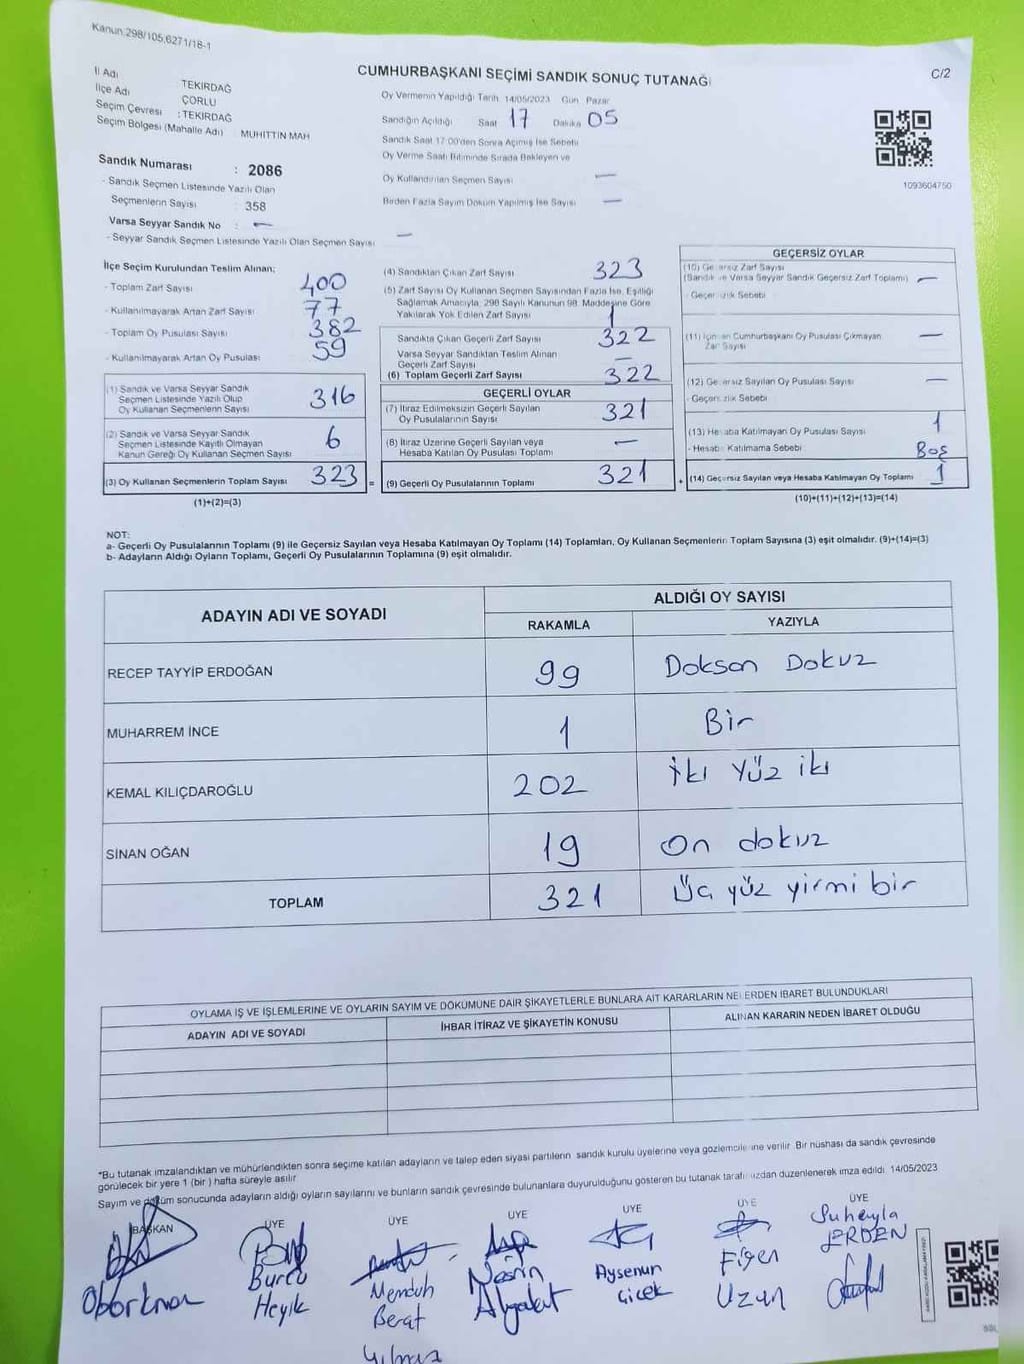 Kanun.298/105,6271/18-1
CUMHURBAŞKANI SEÇİMİ SANDIK SONUÇ TUTANAĞI
C/2
İl Adı TEKİRDAĞ
İlçe Adı ÇORLU
Seçim Çevresi : TEKİRDAĞ
Seçim Bölgesi (Mahalle Adı) : MUHİTTİN MAH
Sandık Numarası : 2086
- Sandık Seçmen Listesinde Yazılı Olan
Seçmenlerin Sayısı 358
Varsa Seyyar Sandık No : —
- Seyyar Sandık Seçmen Listesinde Yazılı Olan Seçmen Sayısı —
Oy Vermenin Yapıldığı Tarih 14/05/2023 Gün Pazar
Sandığın Açıldığı Saat 17 Dakika 05
Sandık Saat 17:00'den Sonra Açılmış İse Sebebi
Oy Verme Saati Bitiminde Sırada Bekleyen ve
Oy Kullandırılan Seçmen Sayısı —
Birden Fazla Sayım Döküm Yapılmış İse Sayısı —
1093604750
İlçe Seçim Kurulundan Teslim Alınan:
- Toplam Zarf Sayısı 400
- Kullanılmayarak Artan Zarf Sayısı 77
- Toplam Oy Pusulası Sayısı 382
- Kullanılmayarak Artan Oy Pusulası 59
(1) Sandık ve Varsa Seyyar Sandık
Seçmen Listesinde Yazılı Olup
Oy Kullanan Seçmenlerin Sayısı 316
(2) Sandık ve Varsa Seyyar Sandık
Seçmen Listesinde Kayıtlı Olmayan
Kanun Gereği Oy Kullanan Seçmen Sayısı 6
(3) Oy Kullanan Seçmenlerin Toplam Sayısı 323 =
(1)+(2)=(3)
(4) Sandıktan Çıkan Zarf Sayısı 323
(5) Zarf Sayısı Oy Kullanan Seçmen Sayısından Fazla İse, Eşitliği
Sağlamak Amacıyla, 298 Sayılı Kanunun 98. Maddesine Göre
Yakılarak Yok Edilen Zarf Sayısı 1
Sandıkta Çıkan Geçerli Zarf Sayısı 322
Varsa Seyyar Sandıktan Teslim Alınan
Geçerli Zarf Sayısı —
(6) Toplam Geçerli Zarf Sayısı 322
GEÇERLİ OYLAR
(7) İtiraz Edilmeksizin Geçerli Sayılan
Oy Pusulalarının Sayısı 321
(8) İtiraz Üzerine Geçerli Sayılan veya
Hesaba Katılan Oy Pusulası Toplamı —
(9) Geçerli Oy Pusulalarının Toplamı 321 +
GEÇERSİZ OYLAR
(10) Geçersiz Zarf Sayısı
(Sandık ve Varsa Seyyar Sandık Geçersiz Zarf Toplamı) —
- Geçersizlik Sebebi
(11) İçinden Cumhurbaşkanı Oy Pusulası Çıkmayan
Zarf Sayısı —
(12) Geçersiz Sayılan Oy Pusulası Sayısı —
- Geçersizlik Sebebi
(13) Hesaba Katılmayan Oy Pusulası Sayısı 1
- Hesaba Katılmama Sebebi Boş
(14) Geçersiz Sayılan veya Hesaba Katılmayan Oy Toplamı 1
(10)+(11)+(12)+(13)=(14)
NOT:
a- Geçerli Oy Pusulalarının Toplamı (9) ile Geçersiz Sayılan veya Hesaba Katılmayan Oy Toplamı (14) Toplamları, Oy Kullanan Seçmenlerin Toplam Sayısına (3) eşit olmalıdır. (9)+(14)=(3)
b- Adayların Aldığı Oyların Toplamı, Geçerli Oy Pusulalarının Toplamına (9) eşit olmalıdır.
ADAYIN ADI VE SOYADI ALDIĞI OY SAYISI
RAKAMLA YAZIYLA
RECEP TAYYİP ERDOĞAN 99 Doksan Dokuz
MUHARREM İNCE 1 Bir
KEMAL KILIÇDAROĞLU 202 İki Yüz iki
SİNAN OĞAN 19 On dokuz
TOPLAM 321 Üç yüz yirmi bir
OYLAMA İŞ VE İŞLEMLERİNE VE OYLARIN SAYIM VE DÖKÜMÜNE DAİR ŞİKAYETLERLE BUNLARA AİT KARARLARIN NELERDEN İBARET BULUNDUKLARI
ADAYIN ADI VE SOYADI İHBAR İTİRAZ VE ŞİKAYETİN KONUSU ALINAN KARARIN NEDEN İBARET OLDUĞU
*Bu tutanak imzalandıktan ve mühürlendikten sonra seçime katılan adayların ve talep eden siyasi partilerin sandık kurulu üyelerine veya gözlemcilerine verilir. Bir nüshası da sandık çevresinde
görülecek bir yere 1 (bir) hafta süreyle asılır
Sayım ve döküm sonucunda adayların aldığı oyların sayılarını ve bunların sandık çevresinde bulunanlara duyurulduğunu gösteren bu tutanak tarafımızdan düzenlenerek imza edildi. 14/05/2023
BAŞKAN ÜYE ÜYE ÜYE ÜYE ÜYE ÜYE
Burcu Heyik
Menduh Berat Yılmaz
Nesrin
Aysenur Çicek
Figen Uzun
Suheyla ERDEN